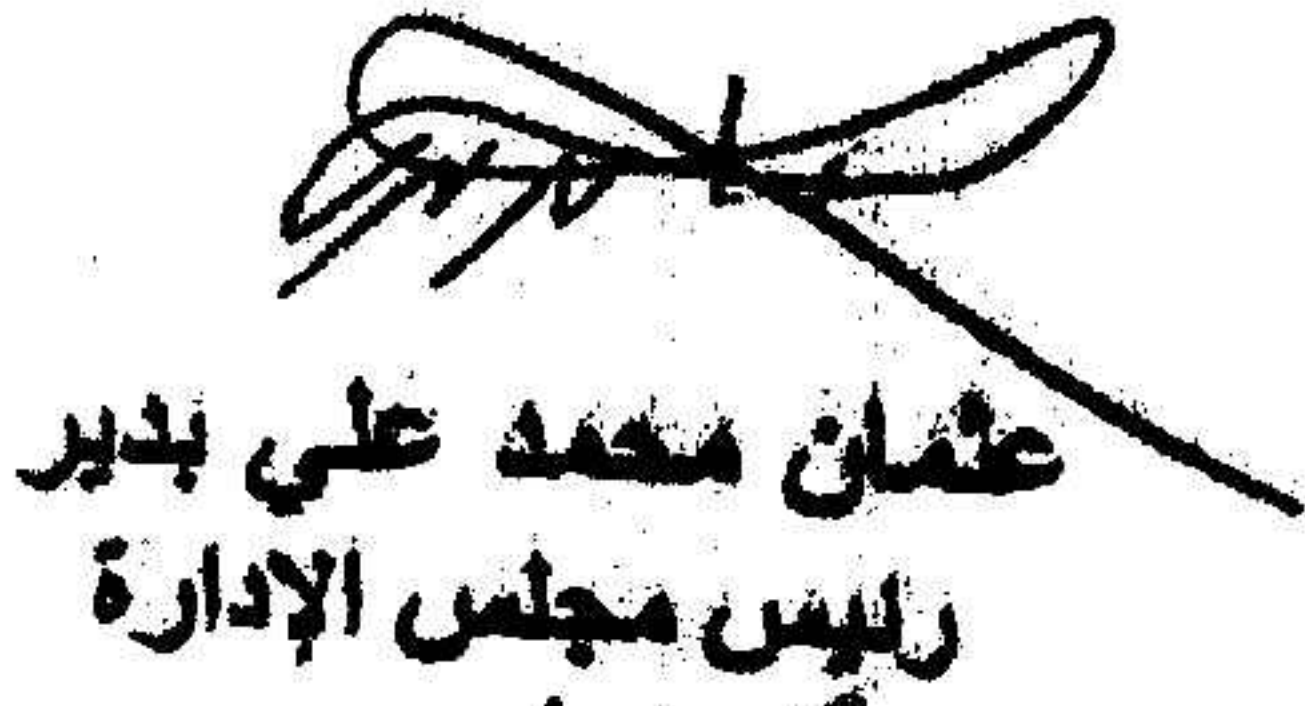 عثمان محمد علي بدير
رئيس مجلس الإدارة